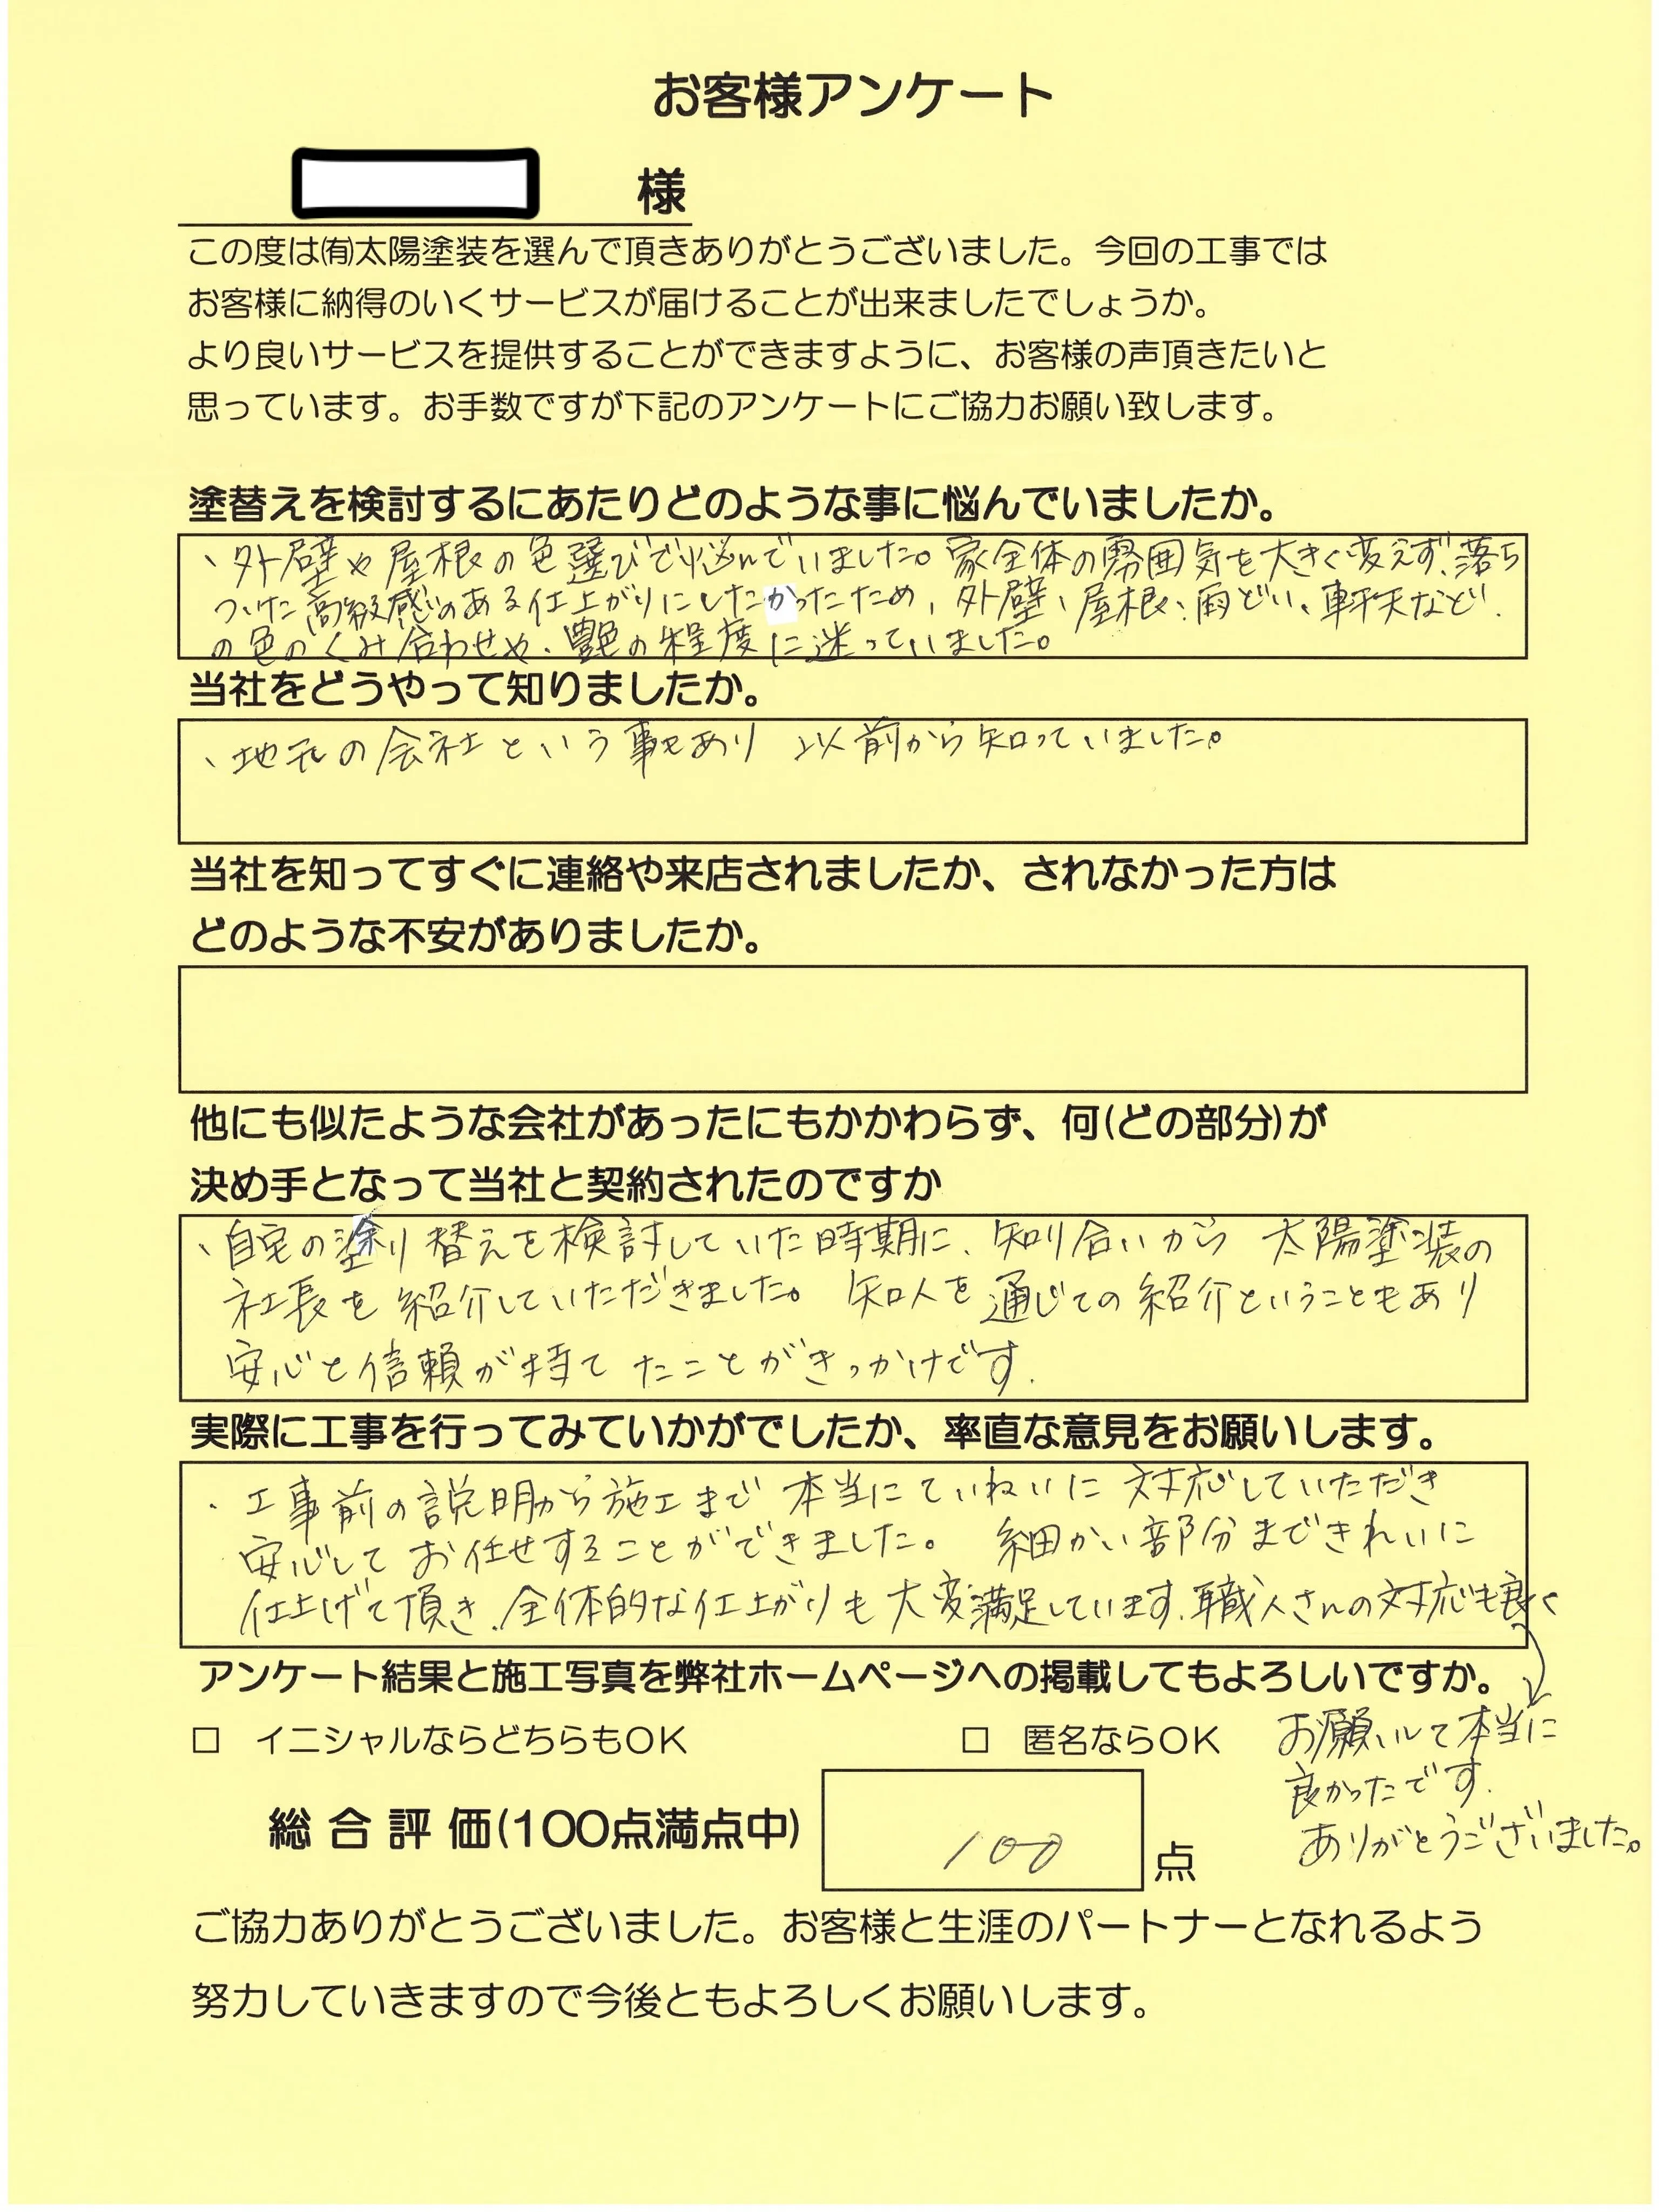 お客様アンケート
様
この度は㈲太陽塗装を選んで頂きありがとうございました。今回の工事では
お客様に納得のいくサービスが届けることが出来ましたでしょうか。
より良いサービスを提供することができますように、お客様の声頂きたいと
思っています。お手数ですが下記のアンケートにご協力お願い致します。
塗替えを検討するにあたりどのような事に悩んでいましたか。
・外壁や屋根の色選びで悩んでいました。家全体の雰囲気を大きく変えず、落ち
ついた高級感のある仕上がりにしたかったため、外壁、屋根、雨どい、軒天など
の色のくみ合わせや、艶の程度に迷っていました。
当社をどうやって知りましたか。
・地元の会社という事もあり 以前から知っていました。
当社を知ってすぐに連絡や来店されましたか、されなかった方は
どのような不安がありましたか。
他にも似たような会社があったにもかかわらず、何(どの部分)が
決め手となって当社と契約されたのですか
・自宅の塗り替えを検討していた時期に、知り合いから 太陽塗装の
社長を紹介していただきました。知人を通じての紹介ということもあり
安心と信頼が持てたことがきっかけです。
実際に工事を行ってみていかがでしたか、率直な意見をお願いします。
・工事前の説明から施工まで 本当にていねいに 対応していただき
安心して お任せすることができました。 細かい部分まできれいに
仕上げて頂き、全体的な仕上がりも大変満足しています。職人さんの対応も良く
アンケート結果と施工写真を弊社ホームページへの掲載してもよろしいですか。
□ イニシャルならどちらもOK □ 匿名ならOK
お願いして本当に
良かったです。
ありがとうございました。
総合評価(100点満点中) 100 点
ご協力ありがとうございました。お客様と生涯のパートナーとなれるよう
努力していきますので今後ともよろしくお願いします。